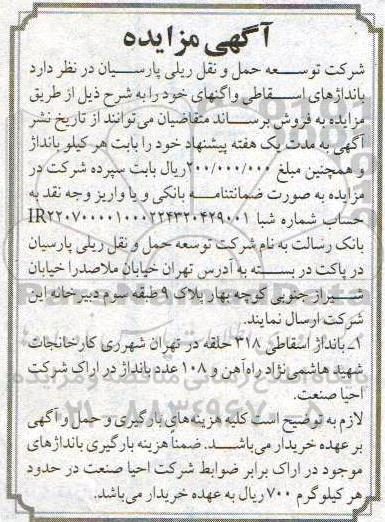 آگهی مزایده
شرکت توسعه حمل و نقل ریلی پارسیان در نظر دارد
بانداژهای اسقاطی واگنهای خود را به شرح ذیل از طریق
مزایده به فروش برساند متقاضیان می توانند از تاریخ نشر
آگهی به مدت یک هفته پیشنهاد خود را بابت هر کیلو بانداژ
و همچنین مبلغ ۲۰۰/۰۰۰/۰۰۰ریال بابت سپرده شرکت در
مزایده به صورت ضمانتنامه بانکی و یا واریز وجه نقد به
حساب شماره شبا IR۲۲۰۷۰۰۰۰۱۰۰۰۲۲۴۳۲۰۴۲۹۰۰۱
بانک رسالت به نام شرکت توسعه حمل و نقل ریلی پارسیان
در پاکت در بسته به آدرس تهران خیابان ملاصدرا خیابان
شیراز جنوبی کوچه بهار پلاک ۹ طبقه سوم دبیرخانه این
شرکت ارسال نمایند.
۱_ بانداژ اسقاطی ۳۱۸ حلقه در تهران شهرری کارخانجات
شهید هاشمی نژاد راه آهن و ۱۰۸ عدد بانداژ در اراک شرکت
احیا صنعت.
لازم به توضیح است کلیه هزینه های بارگیری و حمل و آگهی
بر عهده خریدار می‌باشد. ضمنا هزینه بارگیری بانداژهای
موجود در اراک برابر ضوابط شرکت احیا صنعت در حدود
هر کیلوگرم ۷۰۰ ریال به عهده خریدار می باشد.
۰۲۱-۸۸۳۴۹۶۷۰-۵